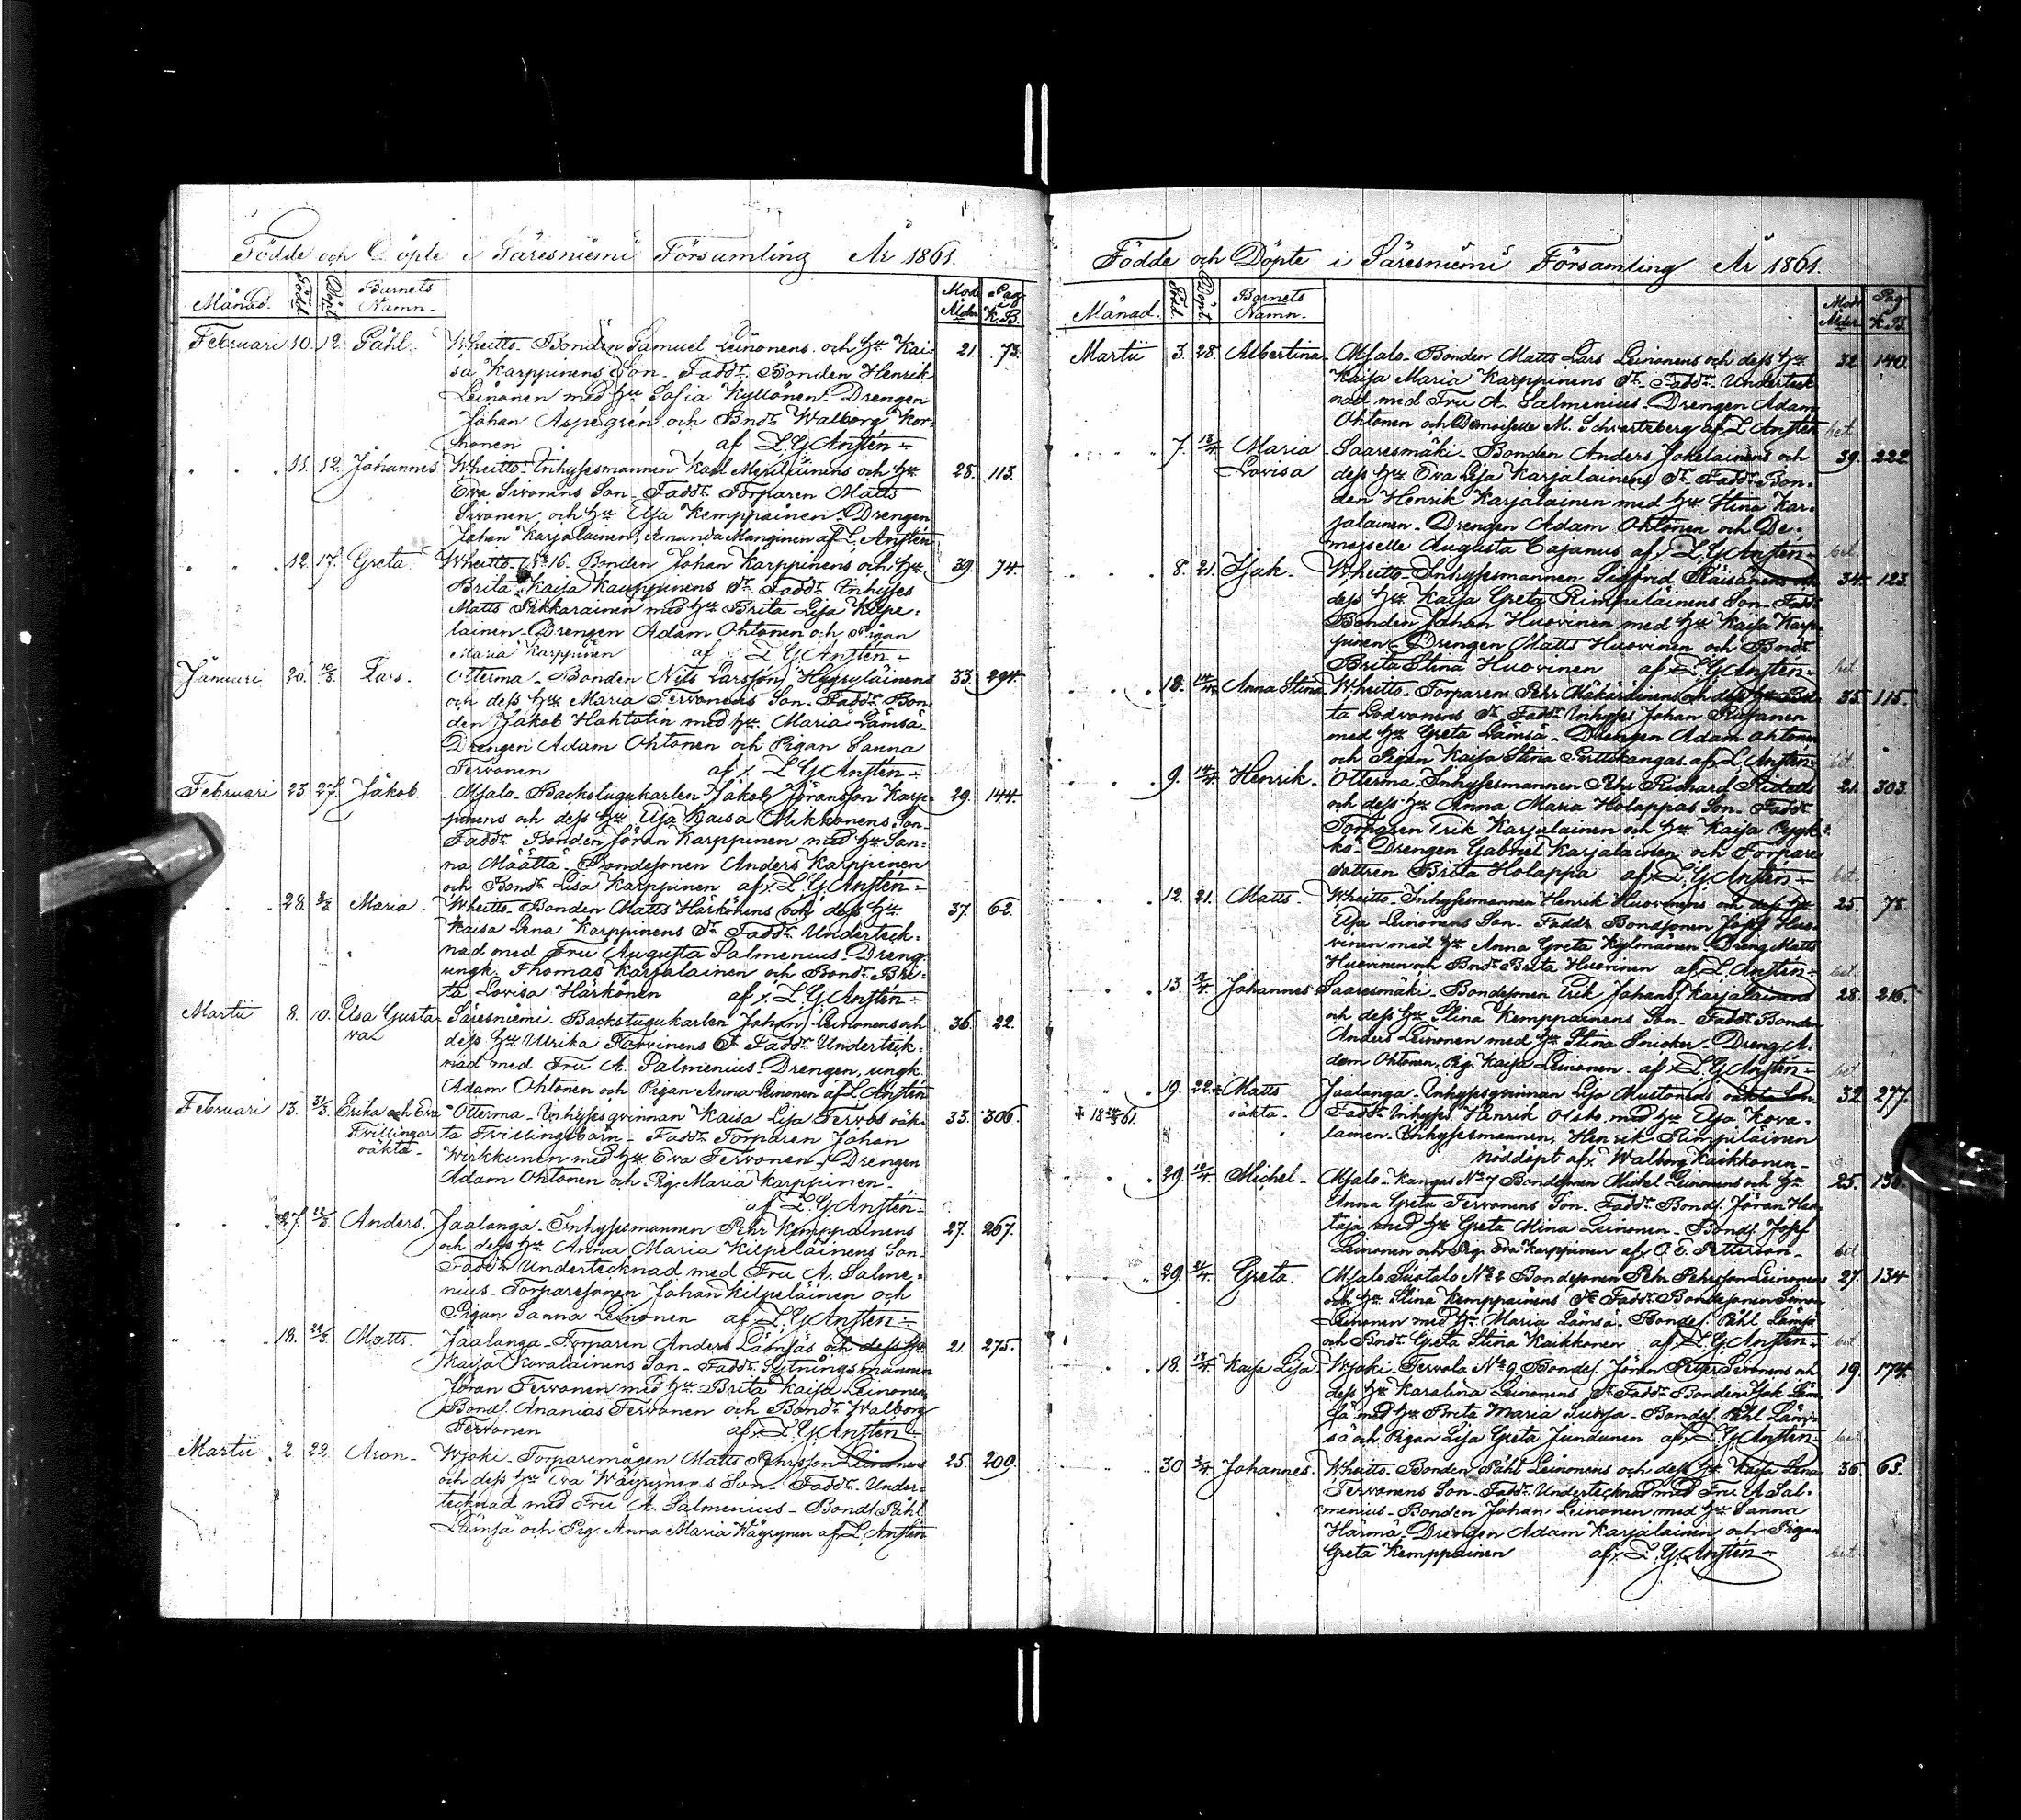 Födde och Döpte i Säresniemi Församling År 1861.
Månad. Född. Döpt. Barnets Namn. Mod. Ålder Pag. K.B.
Februari 10. 12. Påhl. Wheitto. Bonden Samuel Leinonens och Hu Kai- 21. 73.
sa Karppinens Son. Faddr. Bonden Henrik
Leinonen med Hu Sofia Kyllönen. Drengen
Johan Aspegrén och Bndr Walborg Kor-
honen af L. G. Anstén
11. 12. Johannes Wheitto. Inhysesmannen Karl och Hu 28. 113.
Eva Sivonens Son. Faddr. Torparen Matts
Sivonen och Hu Elsa Kemppainen. Drengen
Johan Karjalainen, Amanda Manginen af L. Anstén
12. 17. Greta Wheitto No 16. Bonden Johan Karppinens och Hu 39. 74.
Brita Kaisa Kauppinens Dr. Faddr. Inhyses
Matts Pikkarainen med Hu Brita Lisa Kilpe-
lainen. Drengen Adam Ohtonen och Pigan
Maria Karppinen af L. G. Anstén
Januari 20. 10/3. Lars. Otterma. Bonden Nils Larsson Hyyryläinens 33. 294.
och dess Hu Maria Tervonens Son. Faddr. Bon-
den Jakob Hahtolin med Hu Maria Lämsä.
Drengen Adam Ohtonen och Pigan Sanna
Tervonen af L. G. Anstén
Februari 23. 27. Jakob. Alsalo. Backstugukarlen Jakob Jöransson Karp- 29. 144.
pinens och dess Hu Elsa Kaisa Mikkonens Son
Faddr. Bonden Jöran Karppinen med Hu San-
na Määttä. Bondesonen Anders Karppinen
och Bondr Lisa Karppinen af L. G. Anstén
28. 3/3. Maria. Wheitto. Bonden Matts Härkönens och dess Hu 37. 62.
Kaisa Lena Karppinens Dr. Faddr. Underteck-
nad med Fru Augusta Salmenius. Dreng
ungk. Thomas Karjalainen och Bondr. Bri-
ta Lovisa Härkönen af L. G. Anstén
Martii 8. 10. Elsa Gusta- Säresniemi. Backstugukarlen Johan Leinonens och 36. 22.
va dess Hu Ulrika Dr. Faddr. Underteck-
nad med Fru A. Salmenius. Drengen, ungk.
Adam Ohtonen och Pigan Anna Leinonen af L. Anstén
Februari 13. 31/3. Erika och Eva Otterma. Inhysesqvinnan Kaisa Lisa Tervos oäk- 33. 306.
Tvillingar ta Tvillingbarn. Faddr. Torparen Johan
oäkta. Wirkkunen med Hu Eva Tervonen. Drengen
Adam Ohtonen och Pig. Maria Karppinen.
af L. G. Anstén
27. Anders. Jaalanga. Inhysesmannen Pehr Kemppainens 27. 267.
och dess Hu Anna Maria Kilpeläinens Son.
Faddr. Undertecknad med Fru A. Salme-
nius. Torparesonen Johan Kilpeläinen och
Pigan Sanna Leinonen af L. G. Anstén
18. Matts. Jaalanga. Torparen Anders Lämsäs och dess Hu 21. 275.
Kaisa Kovalainens Son. Faddr. Sytningsmannen
Jöran Tervonen med Hu Brita Kaisa Leinonen
Bonds. Ananias Tervonen och Bondr. Walborg
Tervonen af L. G. Anstén
Martii 2. 22. Aron. Wjoki. Torparemågen Matts Pehrsson Leinonens 25. 209.
och dess Hu Eva Wäyrynens Son. Faddr. Under-
tecknad med Fru A. Salmenius. Bonds. Påhl
Lämsä och Pig. Anna Maria Wäyrynen af L. Anstén
Födde och Döpte i Säresniemi Församling År 1861.
Månad. Född. Döpt. Barnets Namn. Mod. Ålder Pag. K.B.
Martii 3. 28. Albertina. Alsalo. Bonden Matts Lars Leinonens och dess Hu 32. 140.
Kaisa Maria Karppinens Dr. Faddr. Underteck-
nad med Fru A. Salmenius. Drengen Adam
Ohtonen och Demoiselle M. Schvartzberg af L. Anstén bet.
7. Maria Saaresmäki. Bonden Anders Jokelainens och 39. 222.
Lovisa dess Hu Eva Lisa Karjalainens Dr. Faddr. Bon-
den Henrik Karjalainen med Hu Stina Kar-
jalainen. Drengen Adam Ohtonen och De-
moiselle Augusta Cajanus af L. G. Anstén bet.
8. 21. Isak. Wheitto. Inhysesmannen Sigfrid Räisänens och 34. 123.
dess Hu Kaisa Greta Rimpiläinens Son. Faddr.
Bonden Johan Huovinen med Hu Kaisa Karp-
pinen. Drengen Matts Huovinen och Bndr.
Brita Stina Huovinen af L. G. Anstén bet.
18. Anna Stina Wheitto. Torparen Pehr och dess Hu Bri- 35. 115.
ta Dr. Faddr. Inhyses Johan
med Hu Greta Lämsä. Drengen Adam Ohtonen
och Pigan Kaisa Stina af L. Anstén bet.
9. Henrik. Otterma. Inhysesmannen Pehr Richard 21. 303.
och dess Hu Anna Maria Holappas Son. Faddr.
Torparen Erik Karjalainen och Hu Kaisa Pyyk-
kö. Drengen Gabriel Karjalainen och Torpare
dottren Brita Holappa af L. G. Anstén bet.
12. 21. Matts. Wheitto. Inhysesmannen Henrik Huovinens och dess Hu 25. 78.
Elsa Leinonens Son. Faddr. Bondsonen Josef Huo-
vinen med Hu Anna Greta Kylmänen. Dreng Matts
Huovinen och Bndr. Brita Huovinen af L. Anstén bet.
13. Johannes Saaresmäki. Bondesonen Erik Johans. Karjalainens 28. 216.
och dess Hu Stina Kemppainens Son. Faddr. Bonden
Anders Leinonen med Hu Stina Snicker. Dreng A-
dam Ohtonen, Pig. Kaisa Leinonen. af L. G. Anstén bet.
19. 22. Matts Jaalanga. Inhysesqvinnan Lisa Mustonens oäkta Son. 32. 277.
oäkta. Faddr. Inhyses. Henrik med Hu Elsa Kova-
lainen. Inhysesmannen, Henrik Rimpilainen
Nöddöpt af Walborg Kaikkonen.
29. Michel. Alsalo. Kangas No 7 Bondesonen Michel Leinonens och Hu 25.
Anna Greta Tervonens Son. Faddr. Bonds. Jöran
med Hu Greta Mina Leinonen. Bonds. Josef
Leinonen och Pig. Eva Karppinen af O. E. Petterson. bet.
29. Greta. Alsalo No 2 Bondesonen Pehr Pehrsson Leinonens 27. 134.
och Hu Stina Kemppainens Dr. Faddr. Bondesonen Simon
Leinonen med Hu Maria Lämsä. Bondes. Påhl Lämsä
och Bndr. Greta Stina Kaikkonen af L. G. Anstén bet.
18. Kaisa Lisa Wjoki. Tervola No 9 Bondes. Jöran och 19. 174.
dess Hu Karolina Leinonens Dr. Faddr. Bonden Isak Läm-
sä med Hu Brita Maria. Bondes. Påhl Läm-
sä och Pigan Lisa Greta Jundunen af L. G. Anstén bet.
30. Johannes. Wheitto. Bonden Påhl Leinonens och dess Hu Kaisa Lena 36. 63.
Tervonens Son. Faddr. Undertecknad med Fru A Sal-
menius. Bonden Johan Leinonen med Hu Sanna
Härmä. Drengen Adam Karjalainen och Pigan
Greta Kemppainen af L. G. Anstén bet.